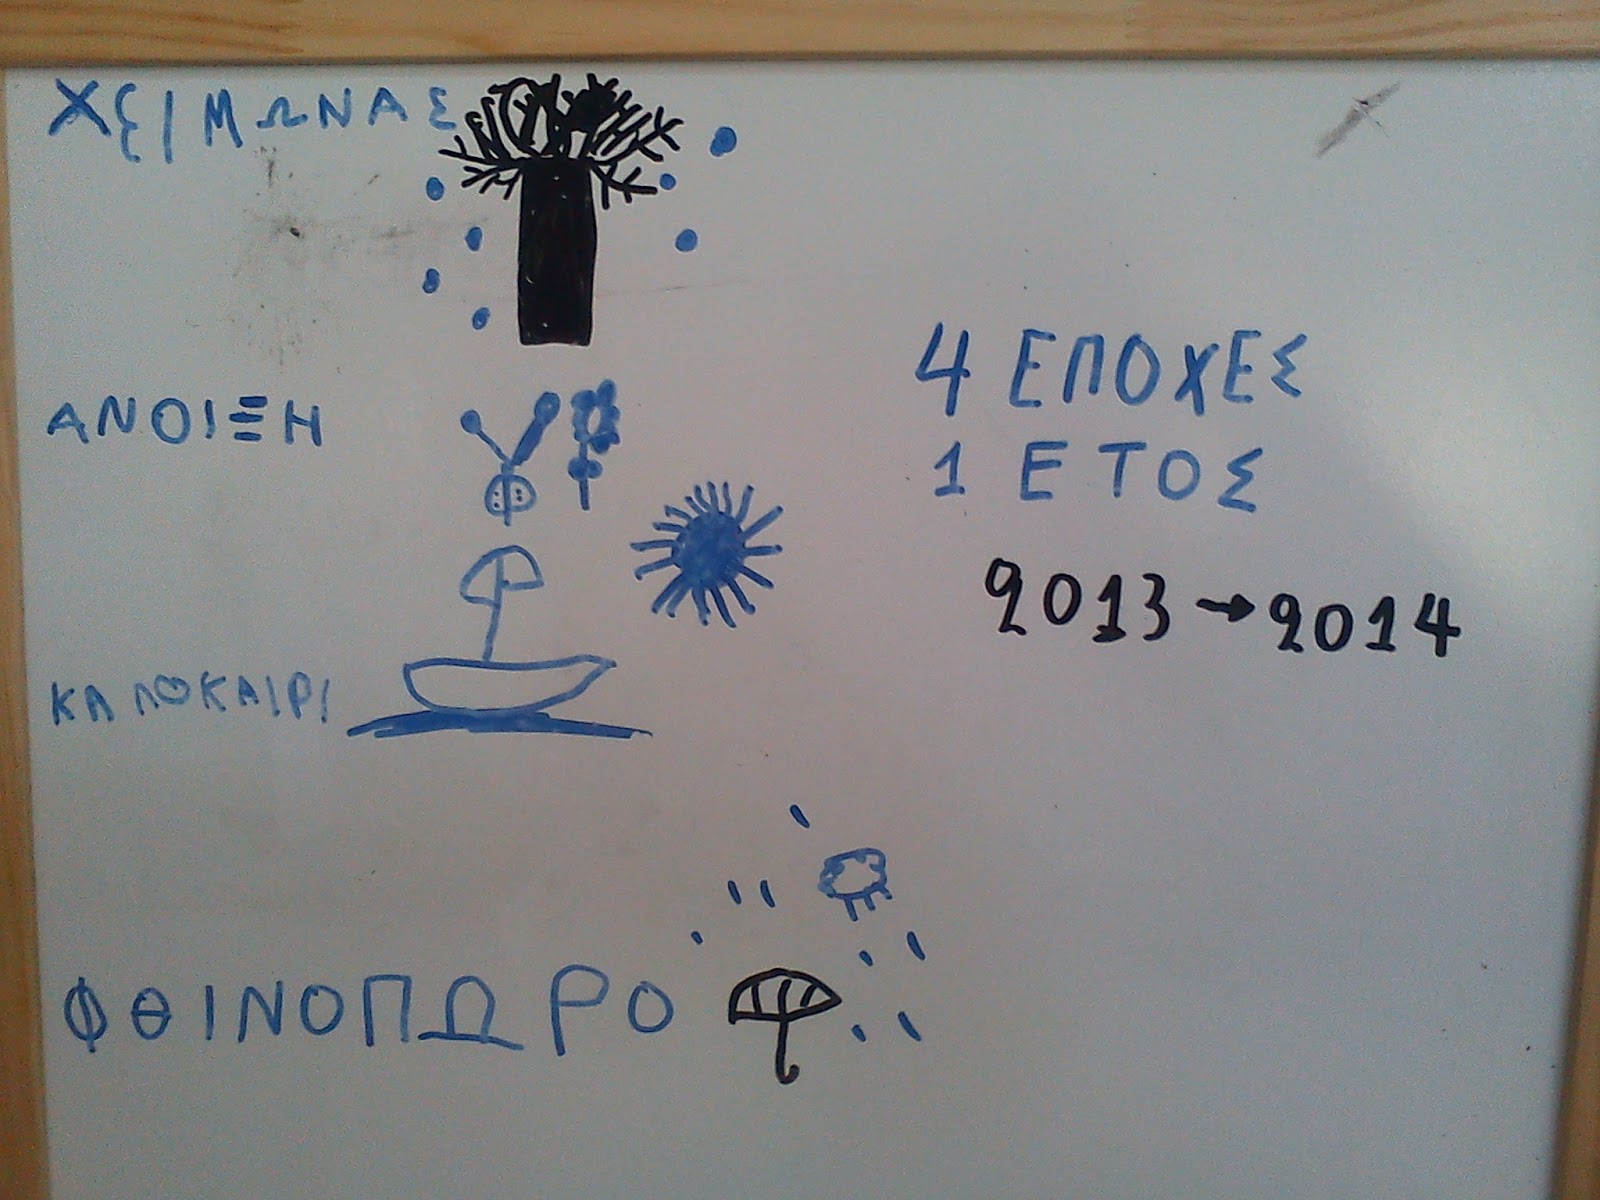 ΧΕΙΜΩΝΑΣ
ΑΝΟΙΞΗ
ΚΑΛΟΚΑΙΡΙ
ΦΘΙΝΟΠΩΡΟ
4 ΕΠΟΧΕΣ
1 ΕΤΟΣ
2013 → 2014